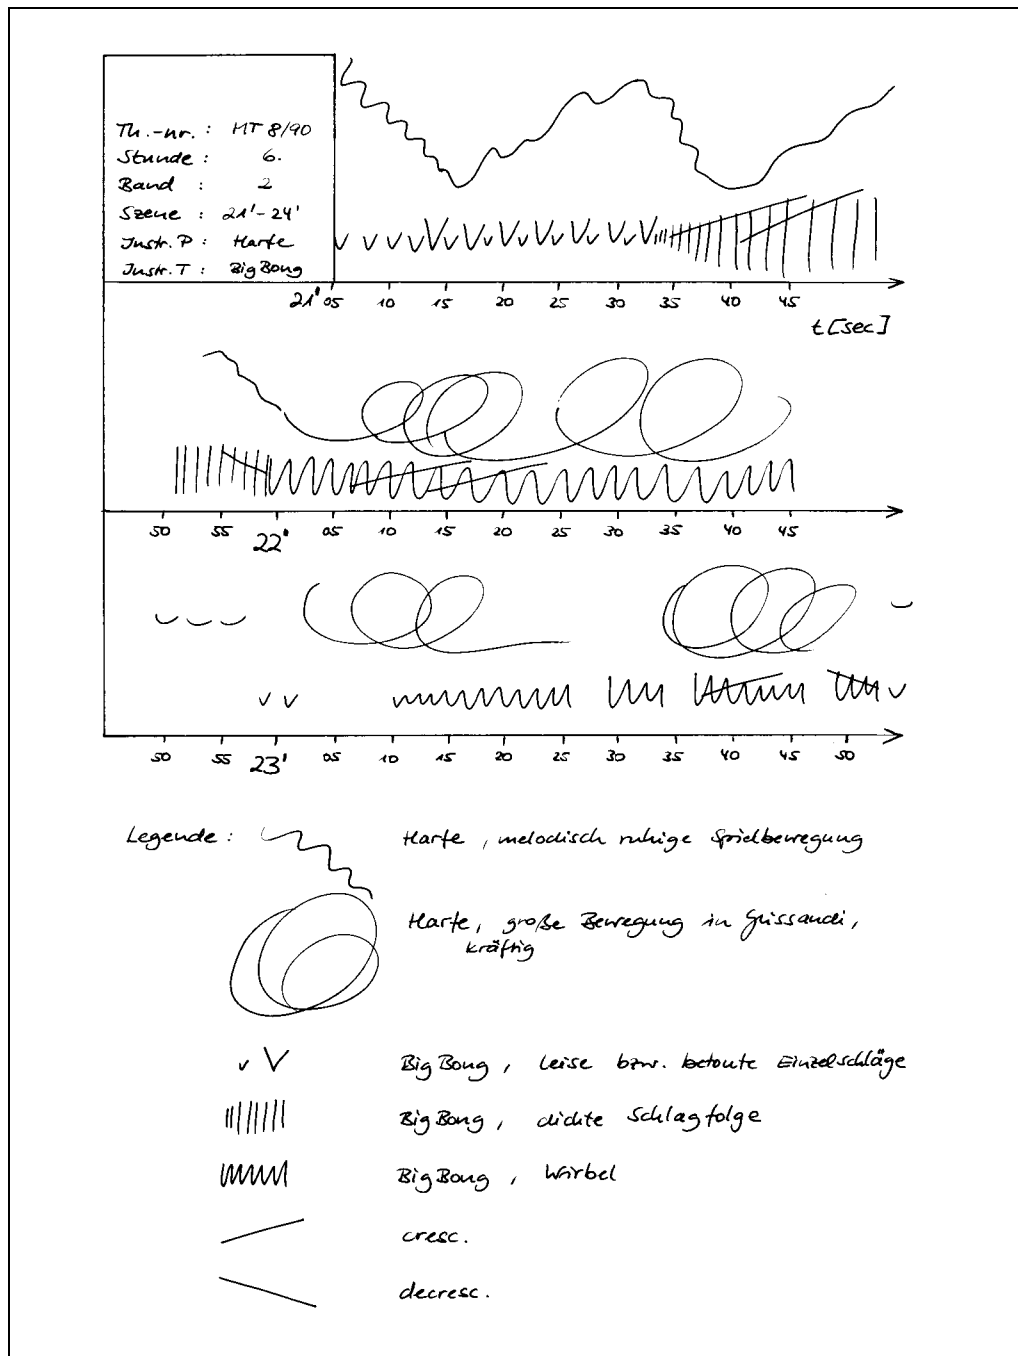 Th.-nr. : MT 8/90
Stunde : 6.
Band : 2
Szene : 21'-24'
Instr. P : Harfe
Instr. T : Big Bong
21' 05 10 15 20 25 30 35 40 45
t [sec]
50 55 22' 05 10 15 20 25 30 35 40 45
50 55 23' 05 10 15 20 25 30 35 40 45 50
Legende : Harfe , melodisch ruhige Spielbewegung
Harfe, große Bewegung in Glissandi,
kräftig
Big Bong , leise bzw. betonte Einzelschläge
Big Bong , dichte Schlagfolge
Big Bong , Wirbel
cresc.
decresc.